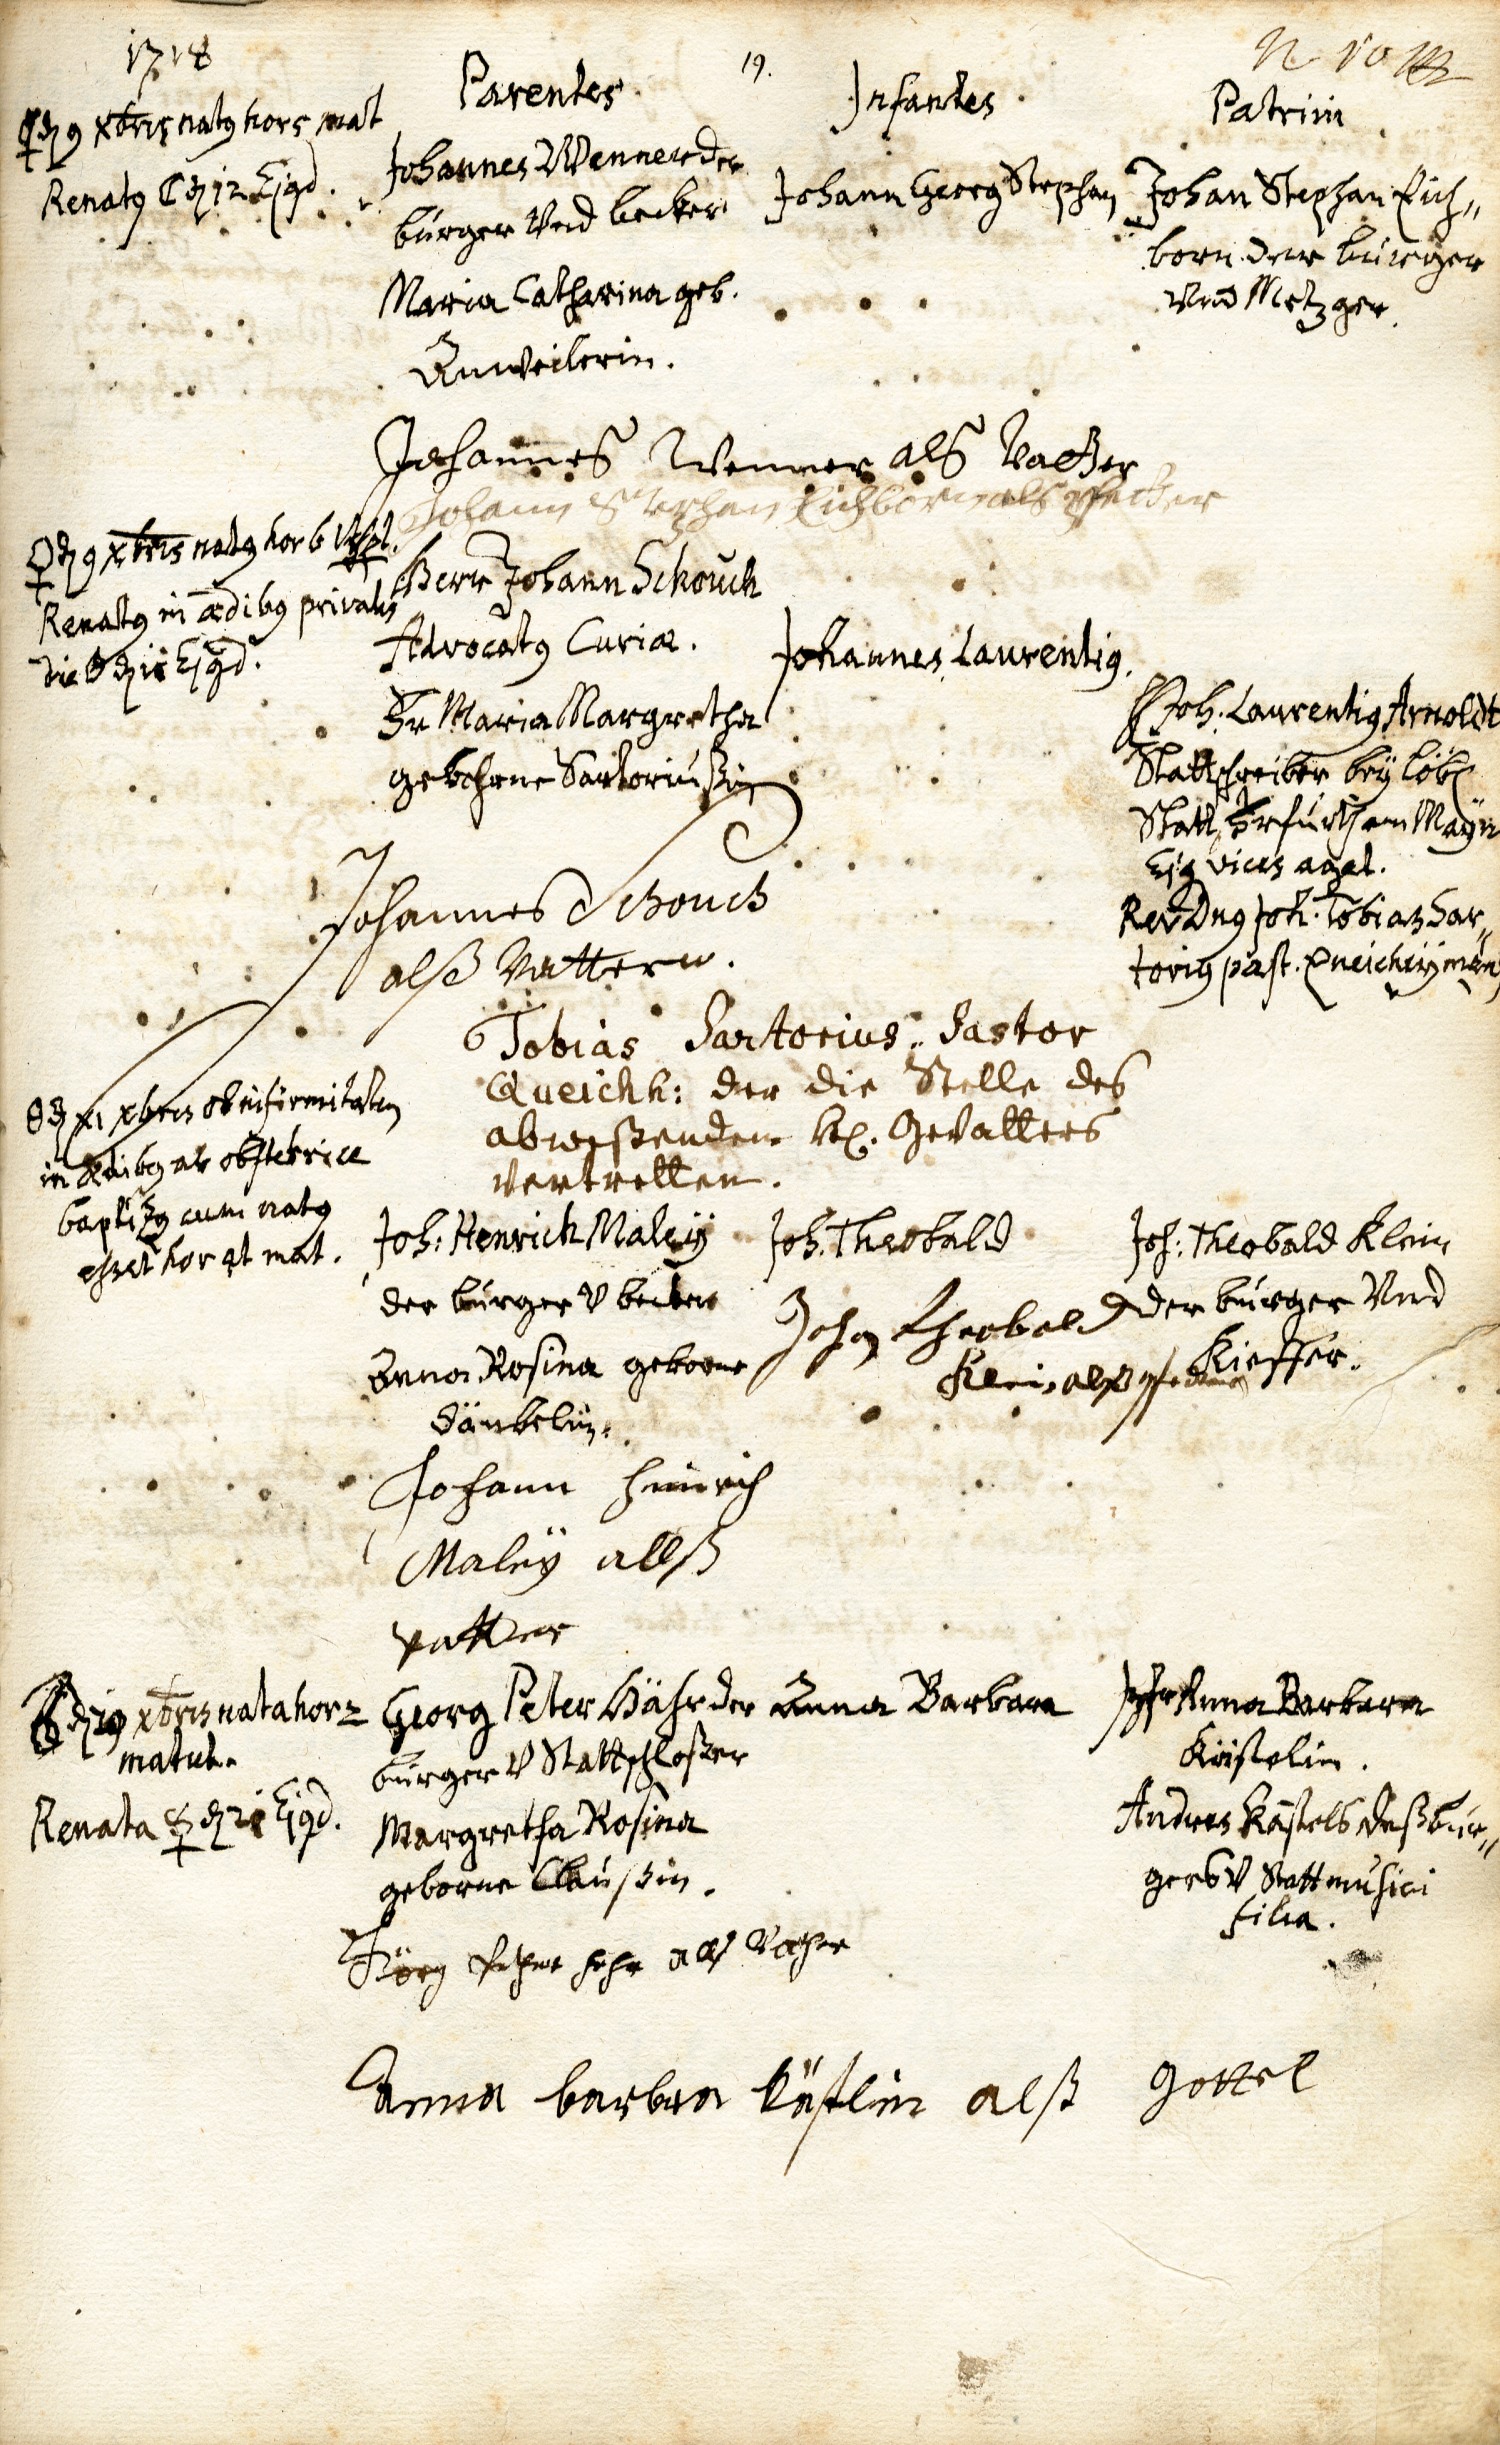 1718
19.
Parentes.
Infantes.
Patrini
♀ dζ 9 xbris natg hor 5 mat
Renatg ☾ dζ 12 Ejqd.
Johannes Wenner der
bürger Und becker
Maria Catharina geb.
Anweilerin.
Johann Georg Stephan
Johan Stephan Eich„
born der bürger
Und Metzger.
Johannes Wenner als Vatter
Johann Stephan Eichborn als pfetter
♀ dζ 9 xbris natg hor 6 Vesp.
Renatg in ædibg privatis
die dζ 11 Ejqd.
Herr Johann Schouch
Advocatg Curiæ.
Fr Maria Margretha
gebohrne Sartoriußin
Johannes Laurentig.
H Joh. Laurentig Arnoldt
Stattschreiber bey löbl
Statt am Mayn
Ejg vices aget.
Rev Dng Joh. Tobias Sar„
torig past. Queicheijmens
Johannes Schouch
alß Vattern.
Tobias Sartorius. Pastor
Queichh: der die Stelle des
abweßenden H. Gevatters
vertretten.
dζ xi xbris ob infirmitatem
in ædibg ab obstetrice
baptizg cum natg
esset hor mat.
Joh: Henrich Maleÿ
der bürger V becker
Anna Rosina geborne
Dänbelin.
Joh. Theobald
Joh: Theobald Klein
der bürger Und
Kieffer.
Johan Theobald
Klein alß pfetter
Johann Heinrich
Maleÿ allß
vatter
dζ 19 xbris nata hor 2
matut.
Renata ☿ dζ 21 Ejqd.
Georg Peter Hähr der
bürger V Stattschloßer
Margretha Rosina
geborne Claußin.
Anna Barbara
Jgfr Anna Barbara
Kästelin.
Andres Kästels deß bür„
gers V Stattmusici
filia.
Jörg Peter hehr als Vatter
Anna barbra Kästlin alß Gottel